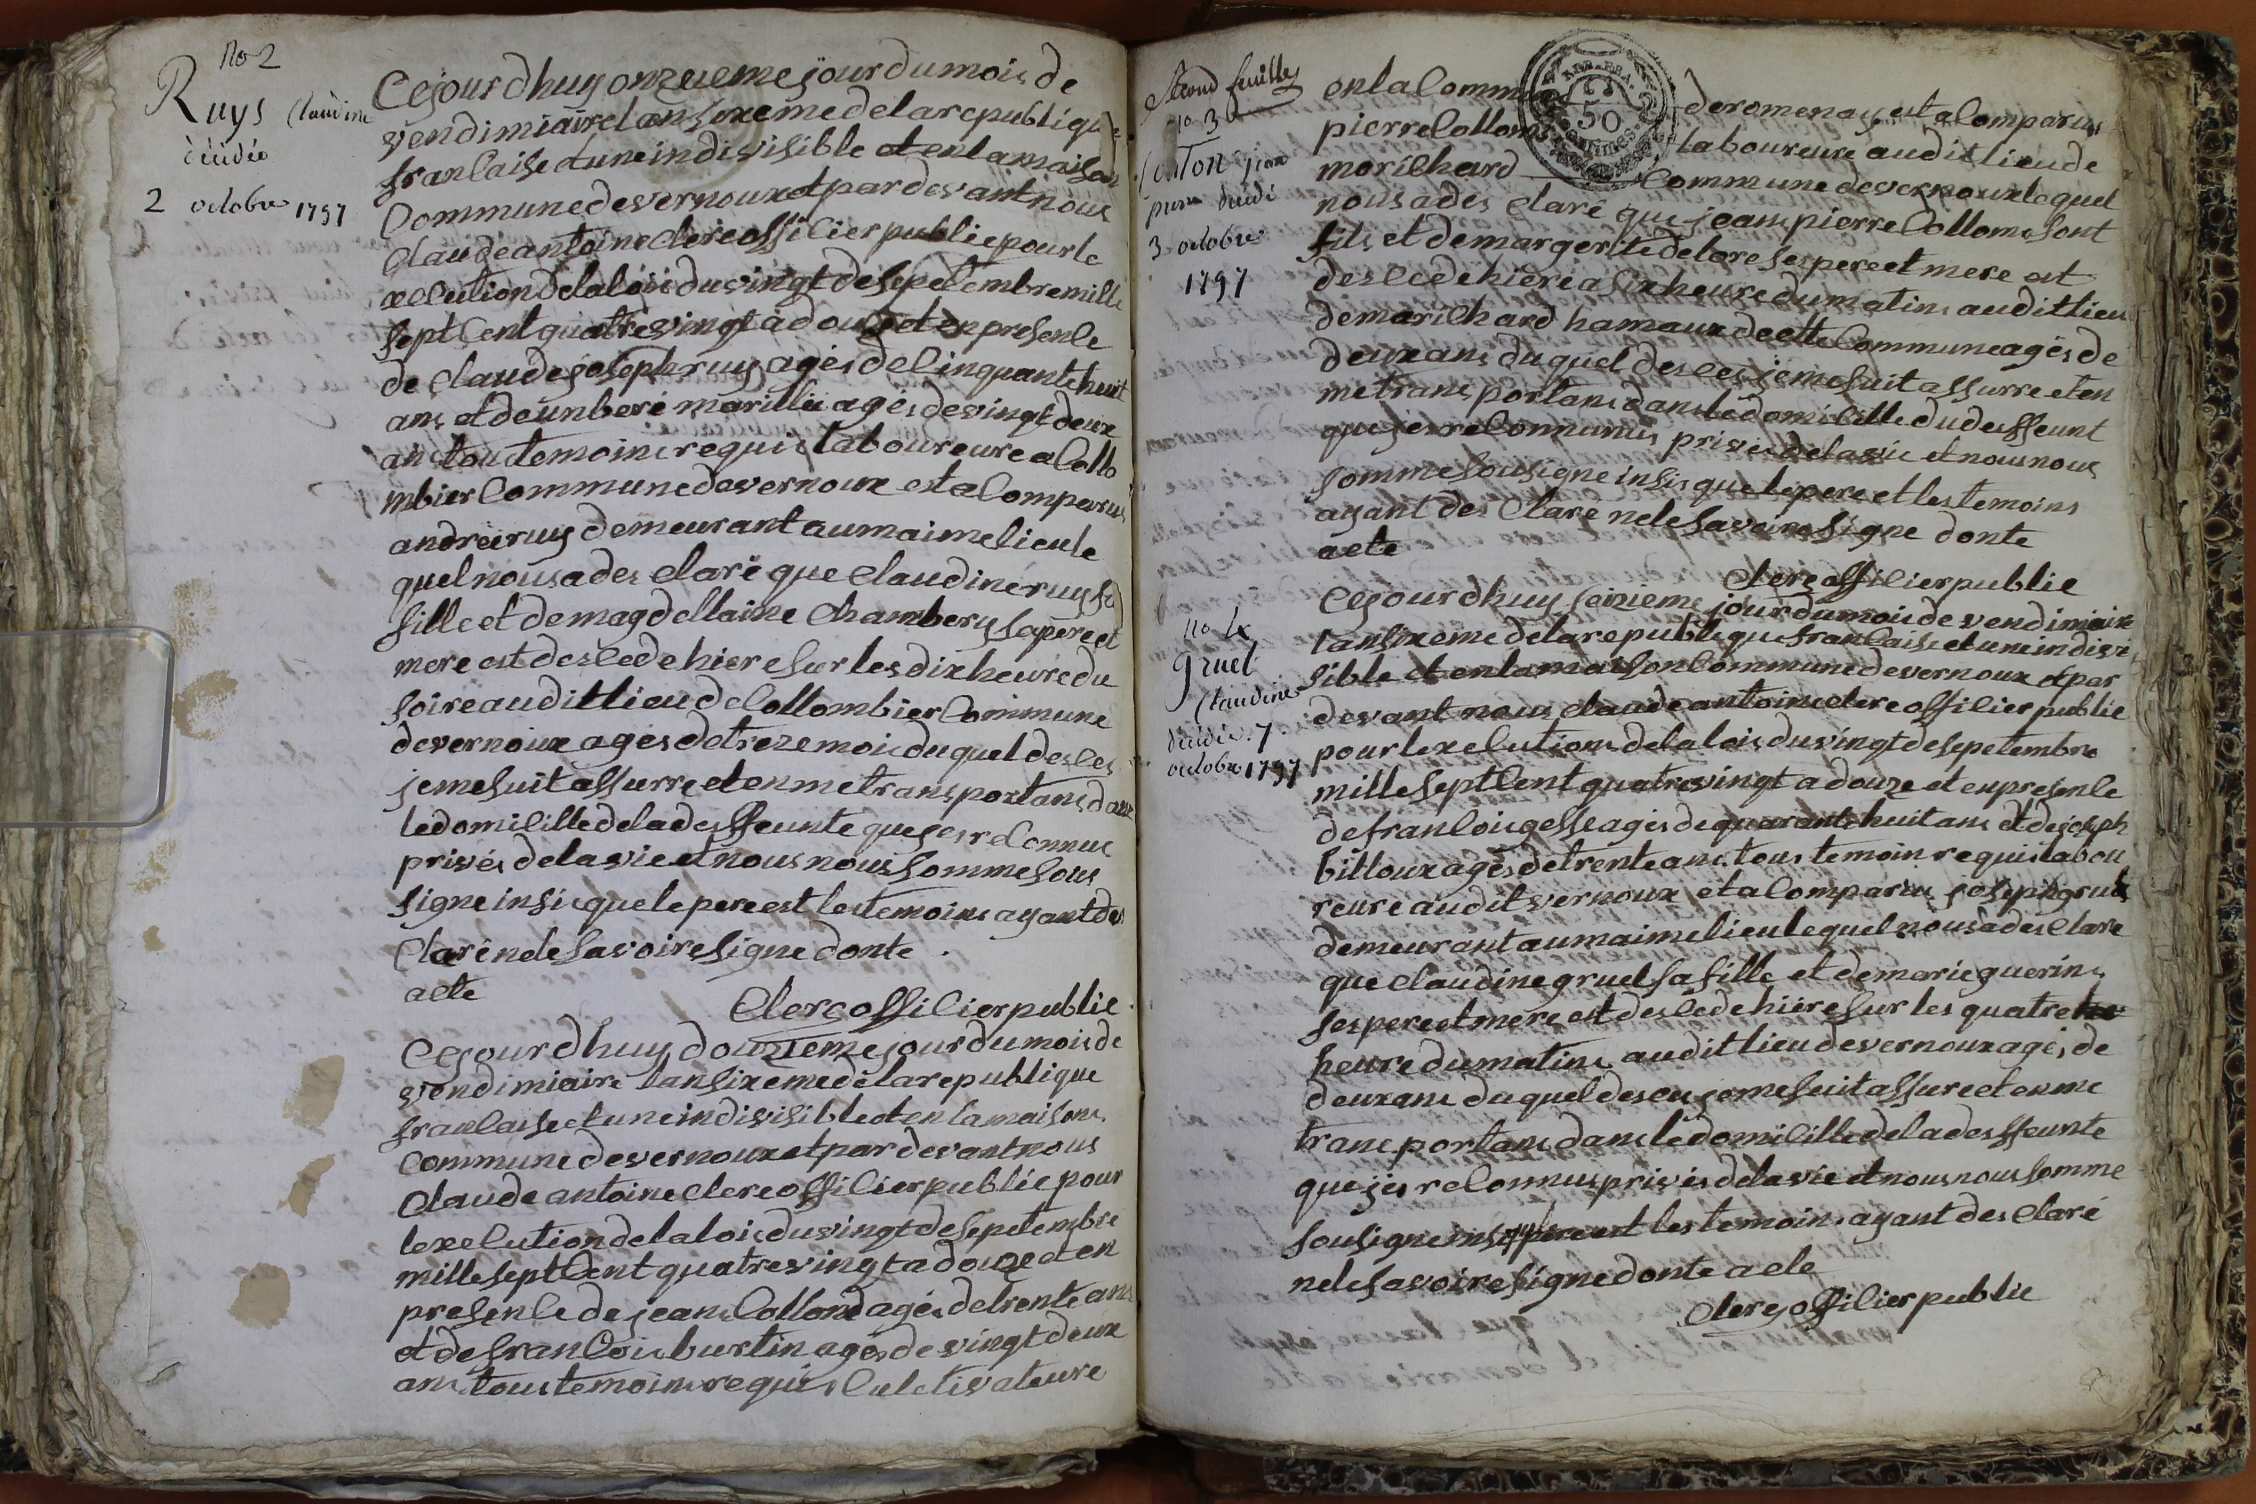 no 2
Ruys Claudine
décédée
2 octobre 1797
Cejourdhuy onzeueme jour du mois de
vendimiaire lan sixeme de la republique
francaise et une indivisible et en la maison
Commune devernoux et par devant nous
Claude antoine clerc officier public pour le
xecution de la loix du vingt de sepetembre mille
sept cent quatre vingt a douze et en presence
de claude joseph ruy agés de cinquante huit
ans et de unberé marillié agés de vingt deux
ans tous temoins requis laboureure a Collo
mbier Commune devernoux est a Comparus
andréé ruy demeurant au maime lieu le
quel nous a des claré que claudine ruy sa
fille et de magdellaine Chambery sa pere et
mere est des cede hiere sur les dix heure du
soire audit lieu de Collombier Commune
devernoux agés de treze mois du quel des ces
je me suit assurre et en me transportans dans
le domicille de la desffeunte que jes reconnus
privés de la vie et nous nous somme sous
signe insi que le pere est les temoins ayant des
Claré ne le savoire signe donte
acte
Clerc officier public
Cejourdhuy douzieme jour du mois de
vendimiaire lan sixeme de la republique
francaise et une indivisible et en la maison
commune devernoux et par devant nous
Claude antoine clerc officier public pour
lexecution de la lois du vingt de sepetembre
mille sept Cent quatre vingt a douze et en
presence de jean Collond agés de trente ans
et de francois burtin agés de vingt deux
ans tous temoins requis culetivateure
Second feuille
no 3
jean
pierre décédé
3 octobre
1797
en la Commune de romenay est a Comparus
pierre Collom laboureure audit lieu de
morilhard Commune devernoux lequel
nous a des claré que jean pierre Collom sont
fils et de margerite delore ses pere et mere est
des cede hiere a six heure du matin audit lieu
de marilhard hamaux de cette Commune agés de
deux ans du quel des ces je me suit assurre et en
me transportans dans le domicille du desffeunt
que jes reconnus privés de la vie et nous nous
somme sousigne insi que le pere et les temoins
ayant des Claré ne le savoire signe donte
acte
Clerc officier public
no 4
gruel
Claudine
décédée 7
octobre 1797
Cejourdhuy sezieme jour du mois de vendimiaire
lan sixeme de la republique francaise et une indivi
sible et en la maison Commune devernoux et par
devant nous claude antoine clerc officier public
pour lexecution de la lois du vingt de sepetembre
mille sept Cent quatre vingt a douze et en presence
de francois gesse agés de quarante huit ans et de joseph
billoux agés de trente ans tous temoin requis labou
reure audit vernoux et a Comparus joseph gruel
demeurant au maime lieu lequel nous a des clare
que claudine gruel sa fille et de marie guerin
ses pere et mere est des cede hiere sur les quatre
heure du matin audit lieu devernoux agés de
deux ans du quel des ces je me suit assure et en me
trans portans dans le domicille de la desffeunte
que jes reconnus privés de la vie et nous nous somme
sousigne insi que le pere est les temoins ayant des Claré
ne le savoire signe donte acte
Clerc officier public